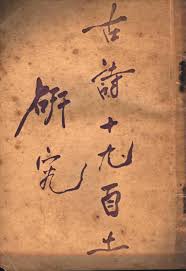 古詩十九首之
研究